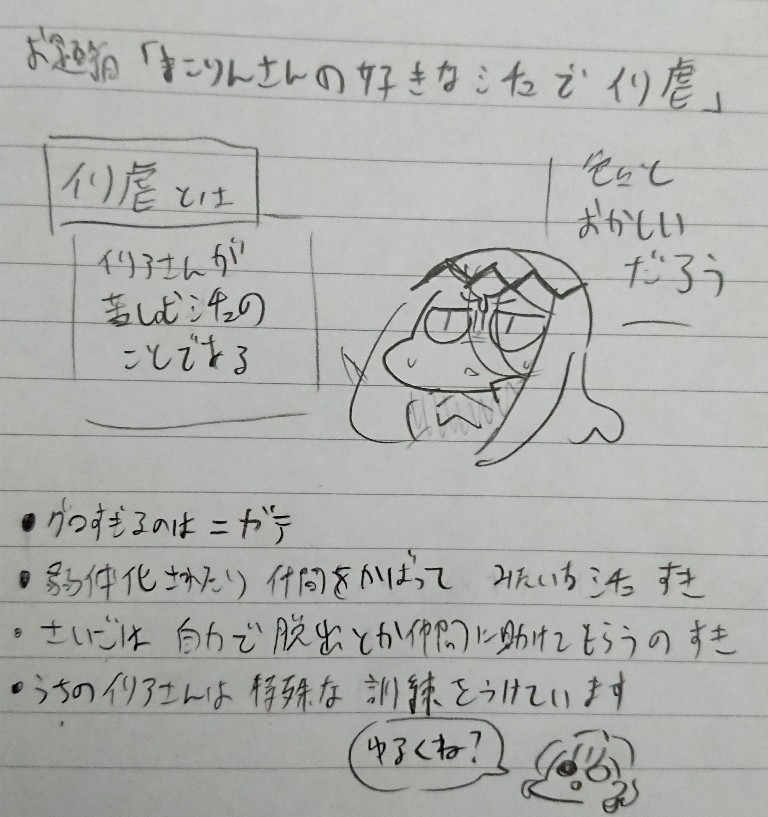 お題箱「まこりんさんの好きなシチュでイリ虐」
イリ虐とは
イリアさんが
苦しむシチュの
ことである
色々と
おかしい
だろう
● グロすぎるのはニガテ
● 弱体化されたり 仲間をかばって みたいなシチュ すき
● さいごは 自力で脱出とか仲間に助けてもらうの すき
● うちのイリアさんは 特殊な 訓練をうけています
ゆるくね?